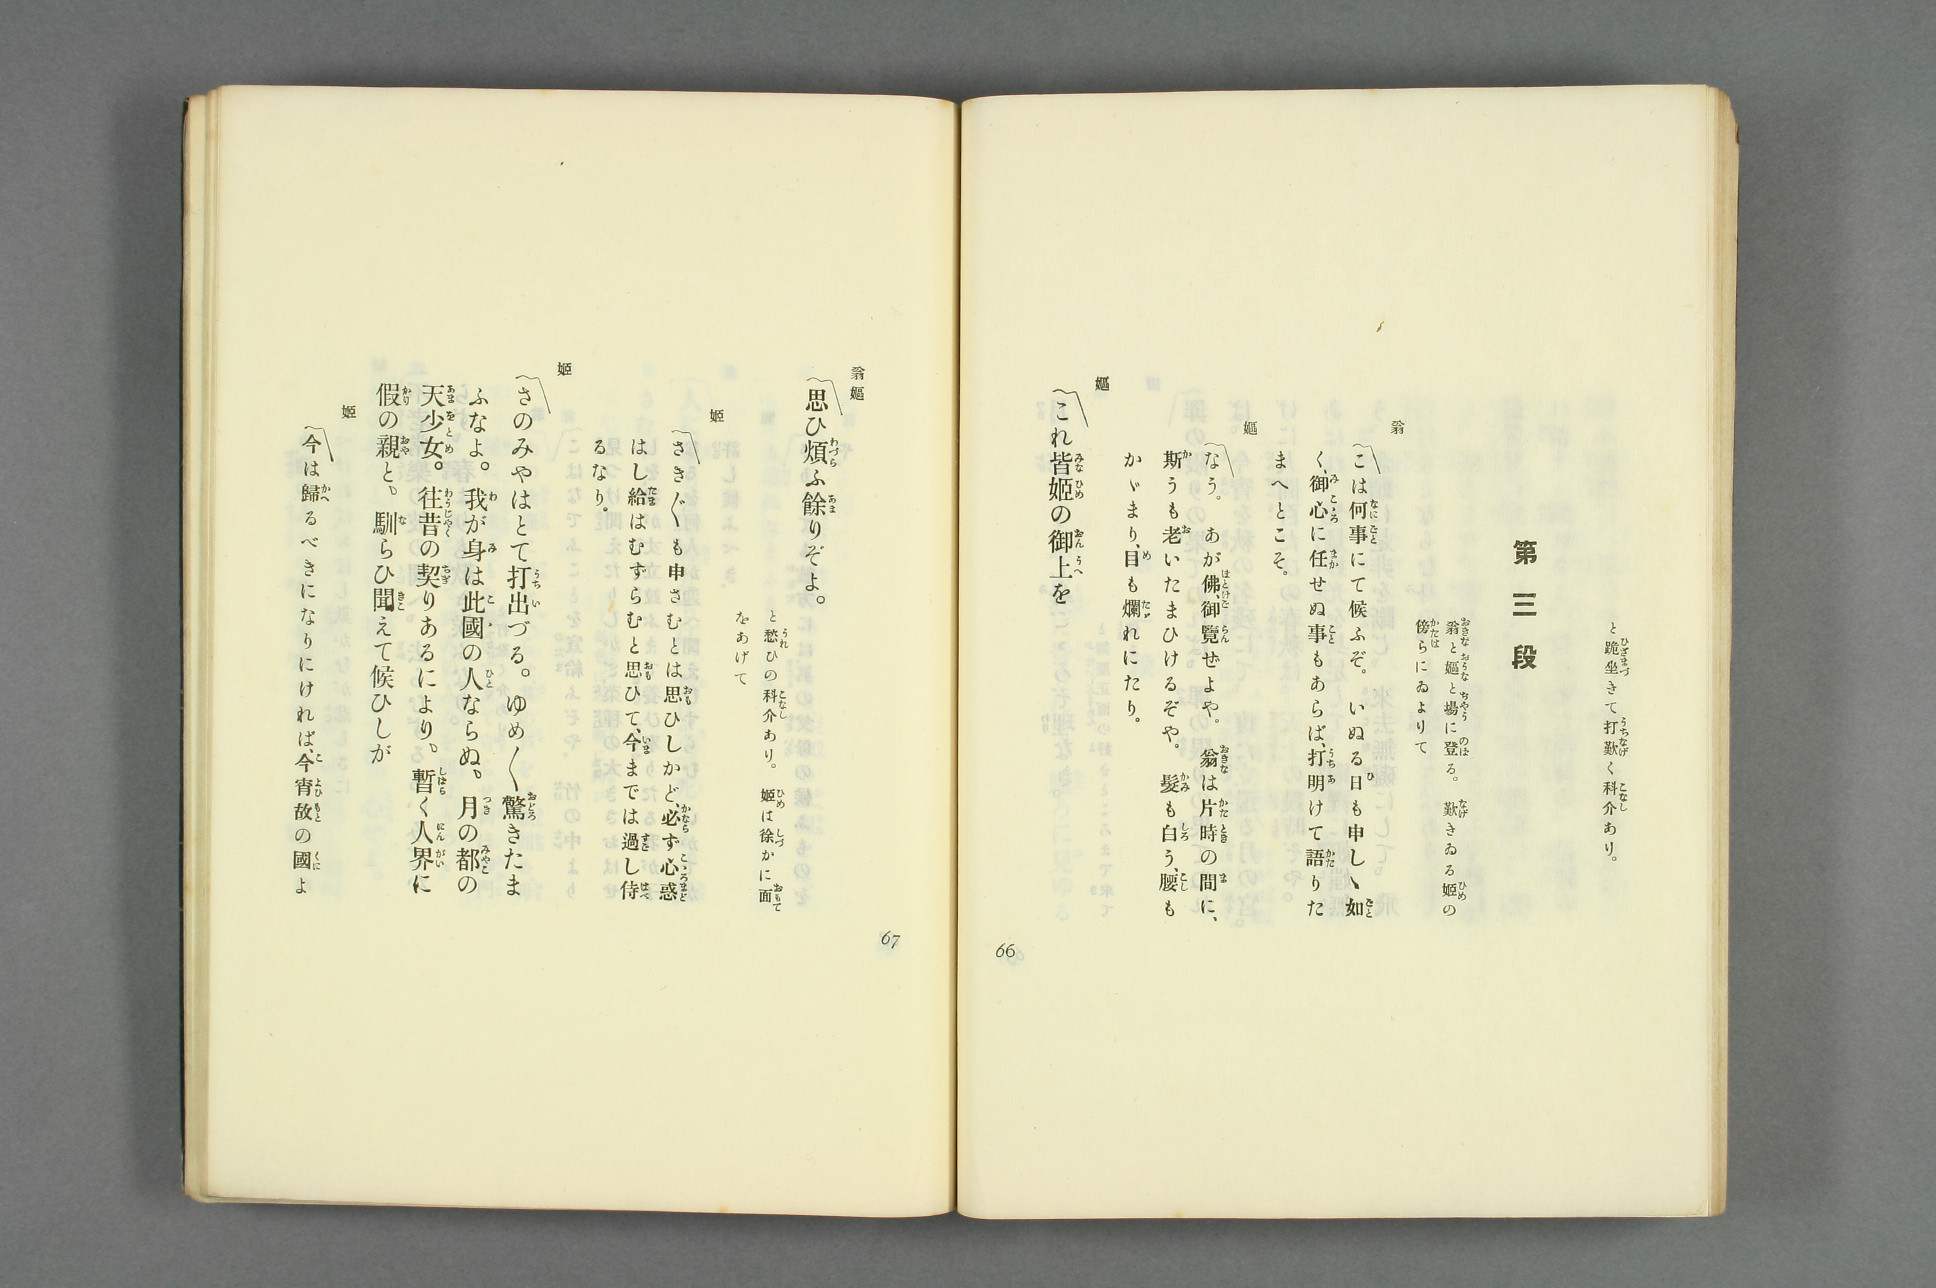 と跪坐きて打歎く科介あり。
第三段
翁と嫗と場に登る。歎きゐる姬の
傍らにゐよりて
翁
こは何事にて候ふぞ。いぬる日も申しゝ如
く、御心に任せぬ事もあらば、打明けて語りた
まへとこそ。
嫗
なう。あが佛、御覽ぜよや。翁は片時の間に、
斯うも老いたまひけるぞや。髮も白う、腰も
かゞまり、目も爛れにたり。
嫗
これ皆姬の御上を
66
翁嫗
思ひ煩ふ餘りぞよ。
と愁ひの科介あり。姬は徐かに面
をあげて
姬
さき〴〵も申さむとは思ひしかど、必ず心惑
はし給はむずらむと思ひて、今までは過し侍
るなり。
姬
さのみやはとて打出づる。ゆめ〱驚きたま
ふなよ。我が身は此國の人ならぬ、月の都の
天少女。往昔の契りあるにより、暫く人界に
假の親と、馴らひ聞えて候ひしが
姬
今は歸るべきになりにければ、今宵故の國よ
67